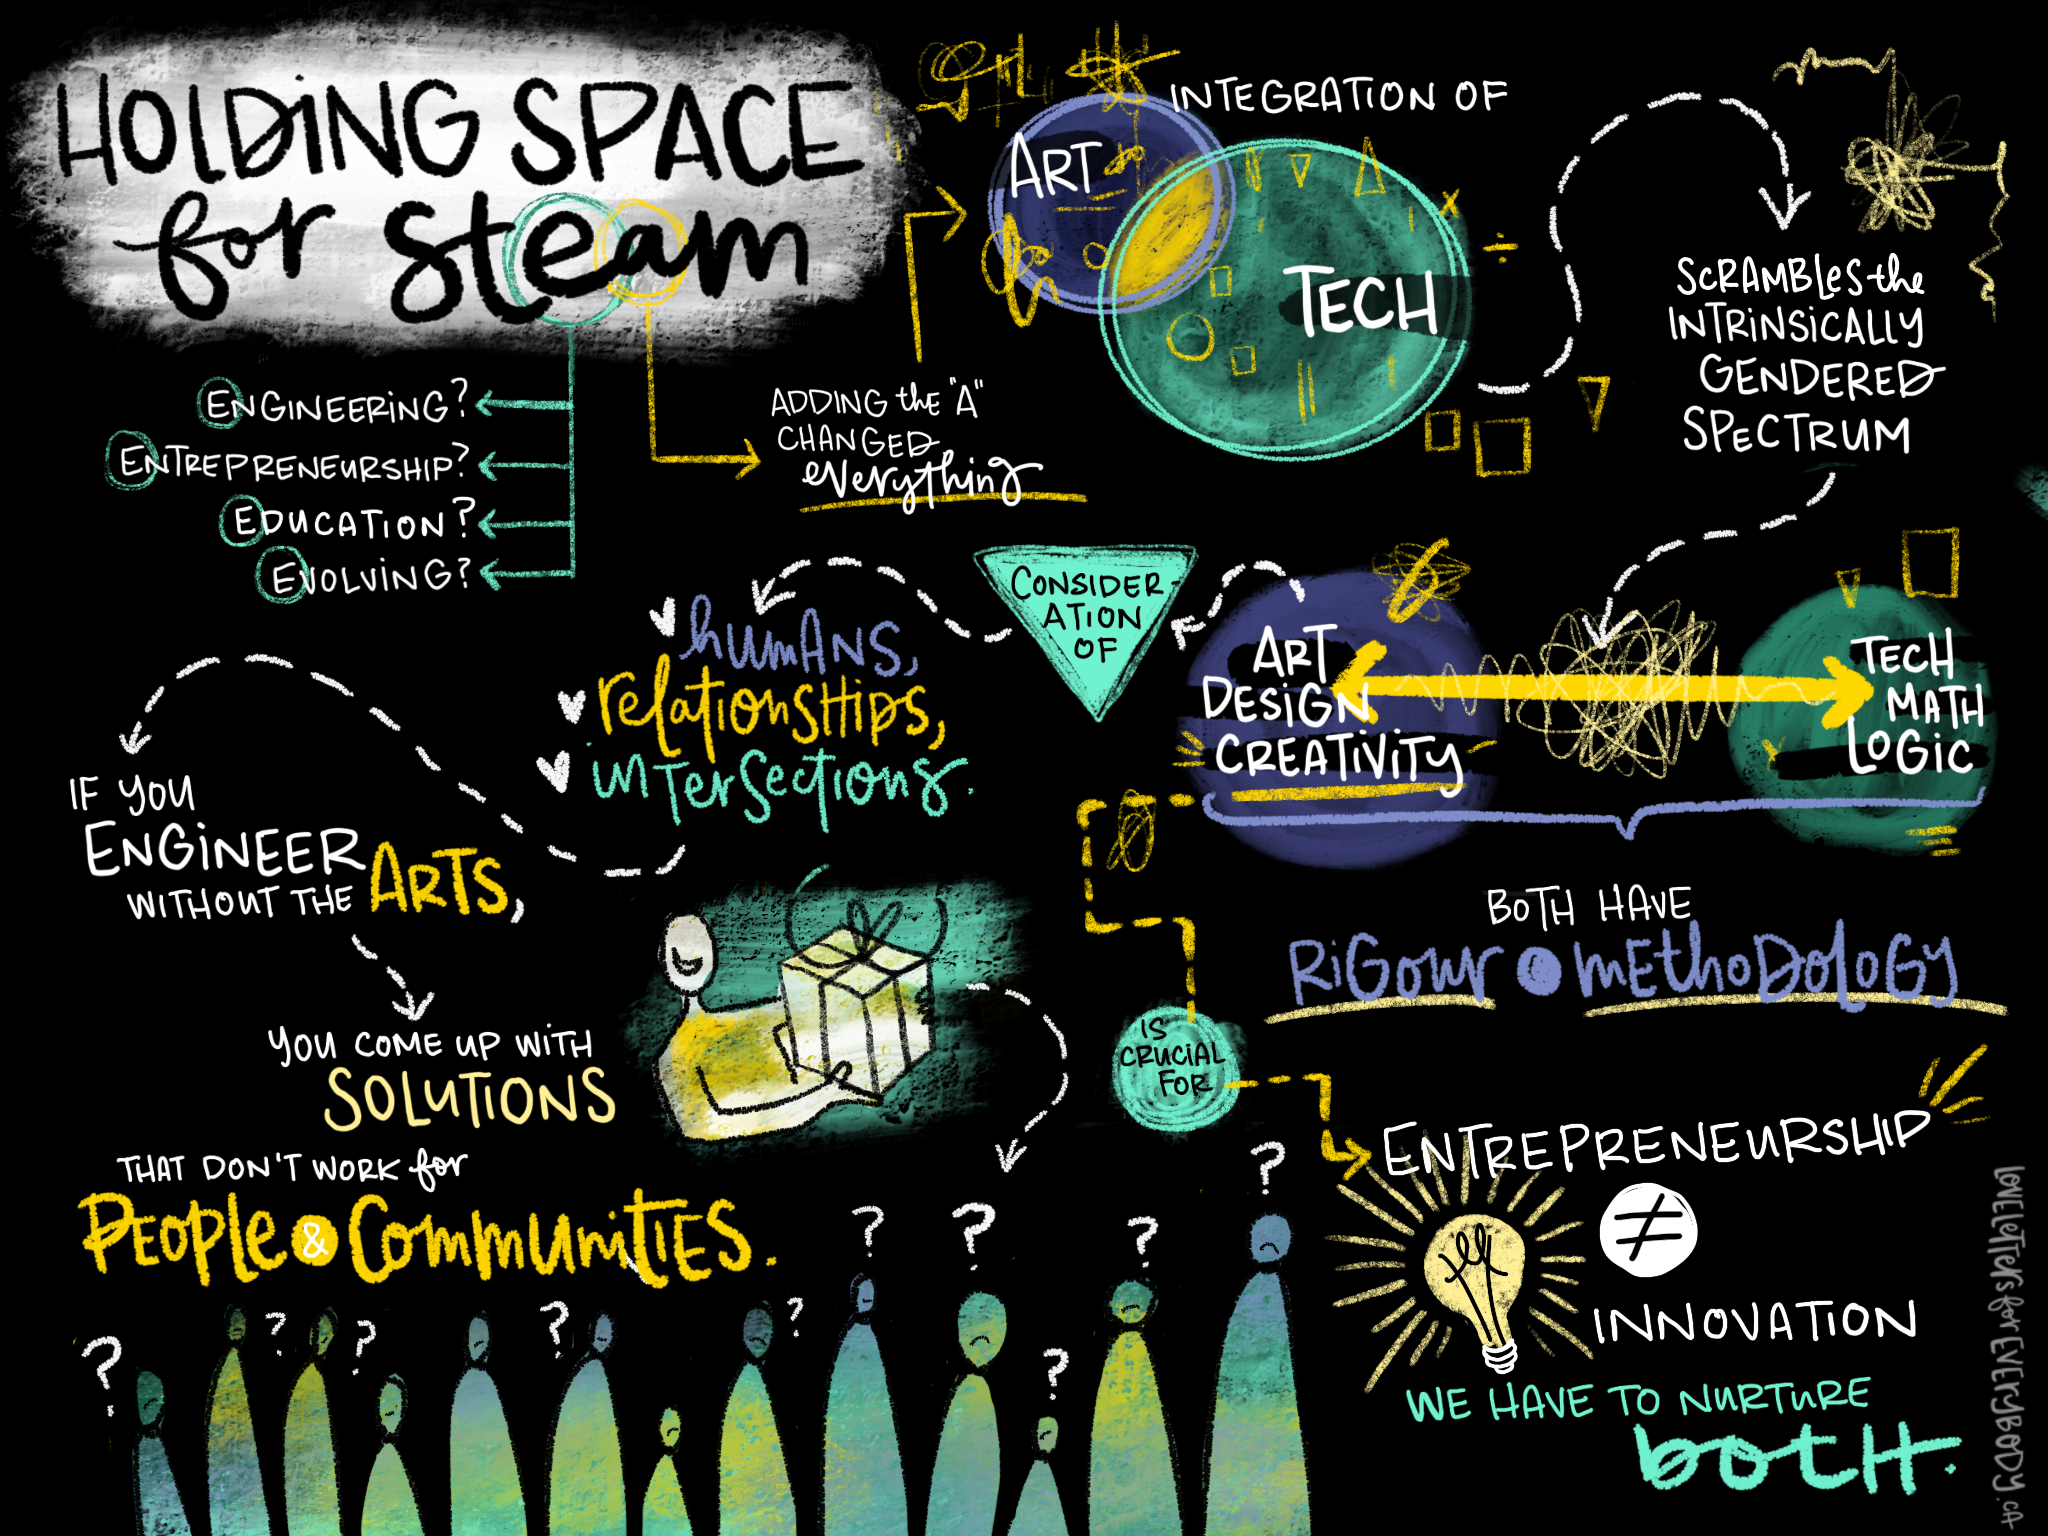 HOLDING SPACE
for steam
ENGINEERING?
ENTREPRENEURSHIP?
EDUCATION?
EVOLVING?
ADDING the "A"
CHANGED
everything
INTEGRATION OF
ART
TECH
SCRAMBLES the
INTRINSICALLY
GENDERED
SPECTRUM
ART
DESIGN
CREATIVITY
TECH
MATH
LOGIC
CONSIDER-
ATION
OF
humans,
relationships,
intersections.
IF YOU
ENGINEER
WITHOUT THE ARTS,
YOU COME UP WITH
SOLUTIONS
THAT DON'T WORK for
PEOPLE & COMMUNITIES.
BOTH HAVE
RIGOUR & METHODOLOGY
IS
CRUCIAL
FOR
ENTREPRENEURSHIP
≠
INNOVATION
WE HAVE TO NURTURE
both.
LOVELETTERS for EVERYBODY.CA